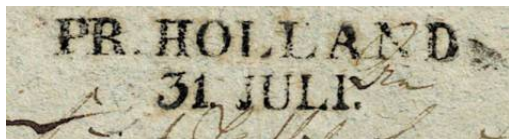 PR. HOLLAND
31. JULI.